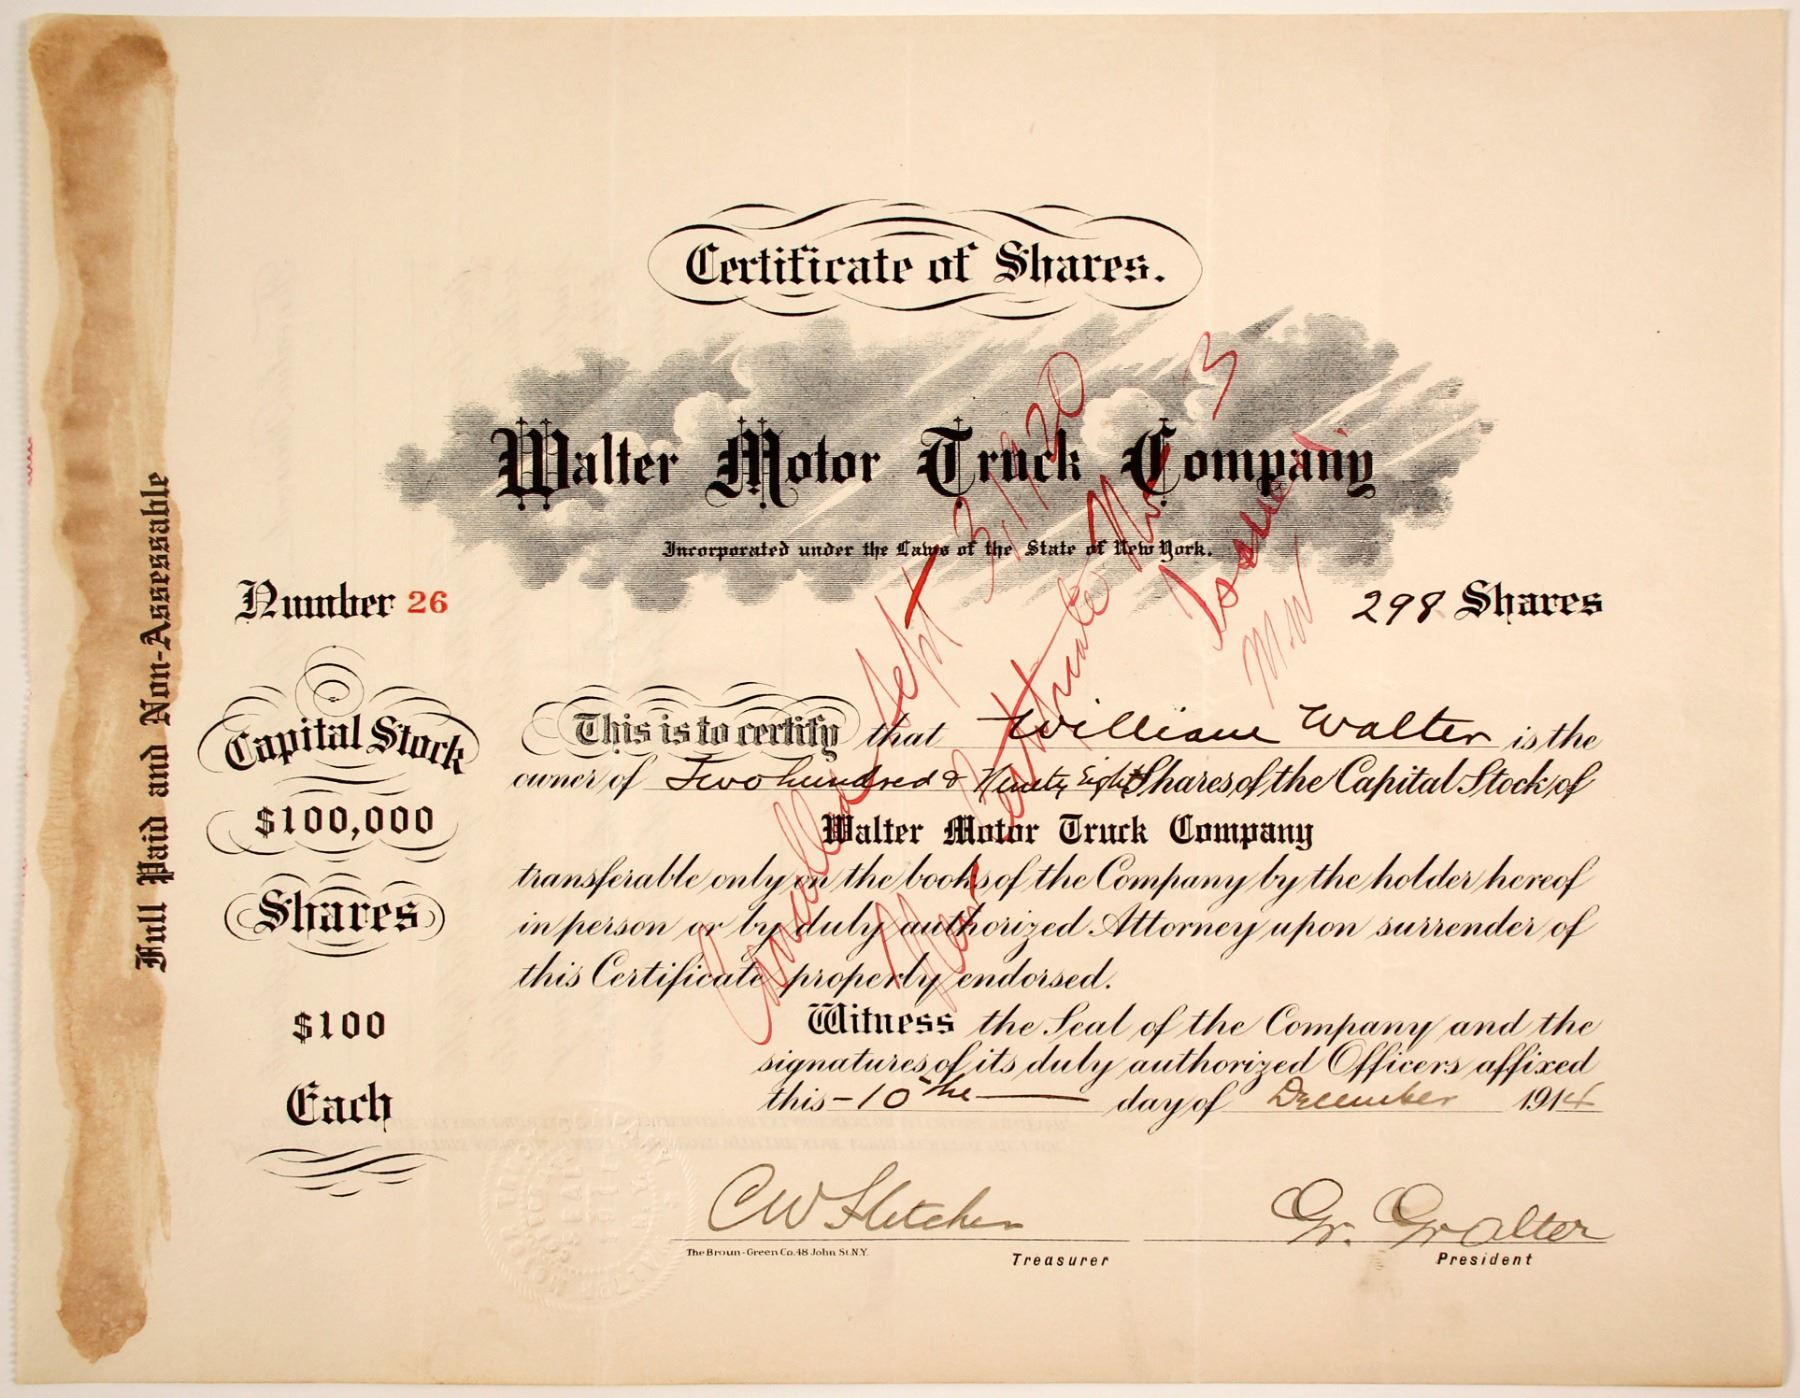 Certificate of Shares.
Walter Motor Truck Company
Incorporated under the Laws of the State of New York.
Number 26
298 Shares
Full Paid and Non-Assessable
Capital Stock
$100,000
Shares
$100
Each
This is to certify that William Walter is the
owner of Two hundred & Ninety Eight Shares of the Capital Stock of
Walter Motor Truck Company
transferable only on the books of the Company by the holder hereof
in person or by duly authorized Attorney upon surrender of
this Certificate properly endorsed.
Witness the Seal of the Company and the
signatures of its duly authorized Officers affixed
this - 10 the day of December 1914
Cancelled Sept 3, 1920
New Certificate No 3
Issued
M.W
CW Fletcher
W. Walter
The Broun-Green Co. 48 John St. N.Y.
Treasurer
President